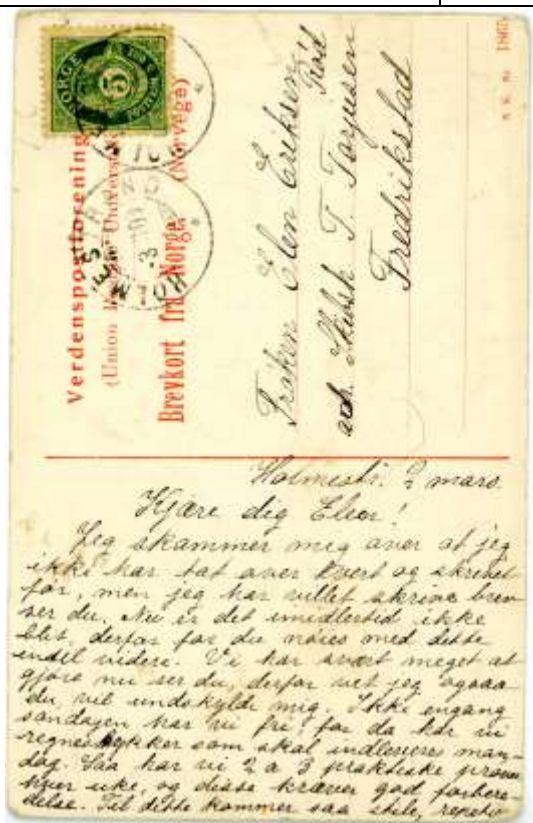 Verdenspostforening
(Union Postale Universelle)
Brevkort fra Norge. (Norvège)
NORGE
5
HOLMESTRAND
Frøken Elen Eriksen
Rød
adr. Skibsk T. Torjusen
Fredrikstad
N. K. Nr 1865
Holmestr. 2 mars.
Kjære dig Elen!
Jeg skammer meg over at jeg
ikke har tat over tvert og skrevet
før, men jeg har villet skrive brev
ser du. Nu er det imidlertid ikke
blit, derfor får du nøies med dette
indtil videre. Vi har svært meget at
gjøre nu ser du, derfor vet jeg ogsaa
du, vil undskylde mig. Ikke engang
søndagen har vi fri, for da har vi
regnestykker som skal indleveres man-
dag. Saa har vi 2 a 3 praktiske prøver
hver uke, og disse kræver god forbere-
delse. Til dette kommer saa stile,